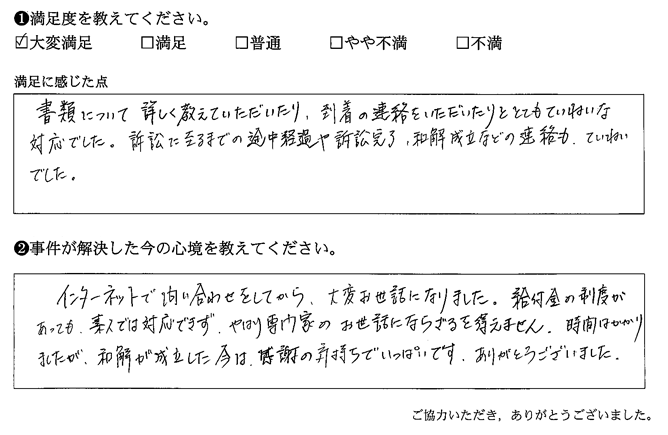 ❶満足度を教えてください。
☑大変満足 □満足 □普通 □やや不満 □不満
満足に感じた点
書類について詳しく教えていただいたり、到着の連絡をいただいたりととてもていねいな
対応でした。訴訟に至るまでの途中経過や訴訟完了、和解成立などの連絡も、ていねい
でした。
❷事件が解決した今の心境を教えてください。
インターネットで問い合わせをしてから、大変お世話になりました。給付金の制度が
あっても、素人では対応できず、やはり専門家のお世話にならざるを得えません。時間はかかり
ましたが、和解が成立した今は、感謝の気持ちでいっぱいです。ありがとうございました。
ご協力いただき、ありがとうございました。